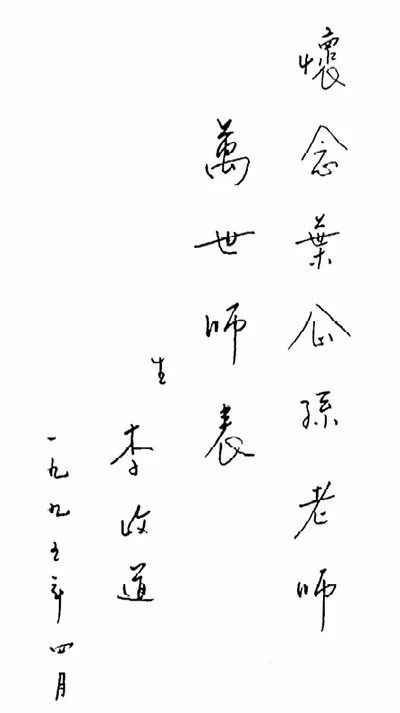 懷念葉企孫老师
萬世师表
生
李政道
一九九五年四月